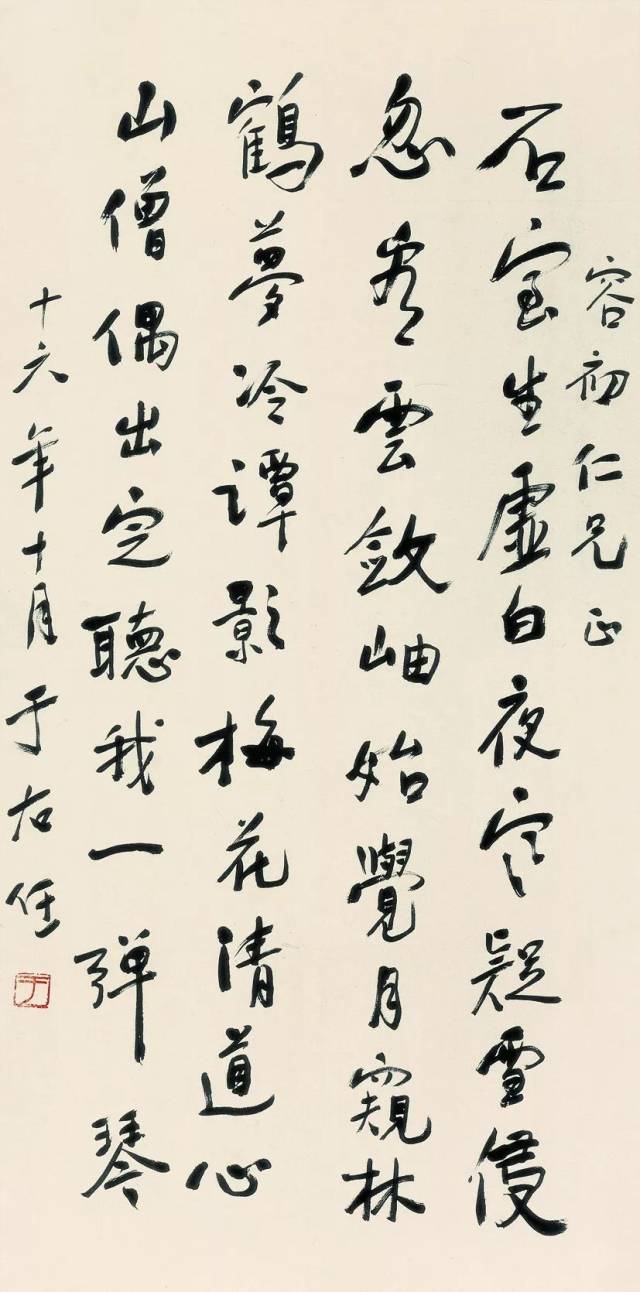 容初仁兄正
石室生虛白夜寒疑雪侵
忽看雲斂岫始覺月窺林
鶴夢冷潭影梅花清道心
山僧偶出定聽我一彈琴
十六年十月于右任
于